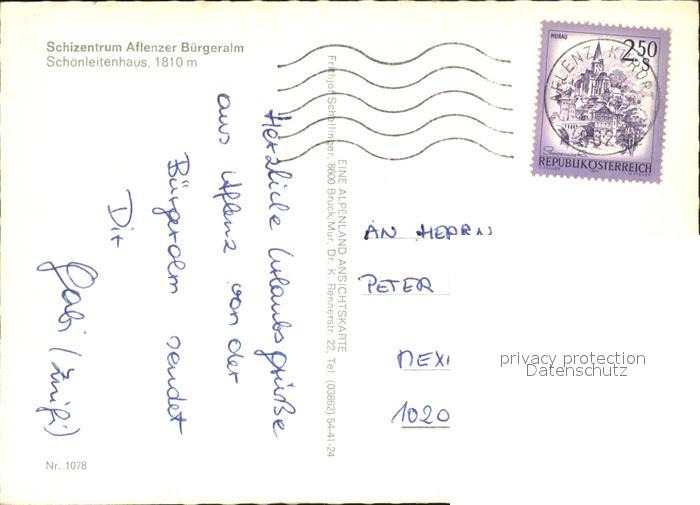 Schizentrum Aflenzer Bürgeralm
Schönleitenhaus, 1810 m
Herzliche Urlaubsgrüße
aus Aflenz von der
Bürgeralm sendet
Dir
Gabi
Nr. 1078
EINE ALPENLAND ANSICHTSKARTE
Frithjof Schellinger, 8600 Bruck/Mur, Dr. K. Rennerstr. 22, Tel. (03862) 54-41-24
MURAU
2.50
S
REPUBLIK ÖSTERREICH
AFLENZ KURORT
AN HERRN
PETER
MEXI
1020
privacy protection
Datenschutz